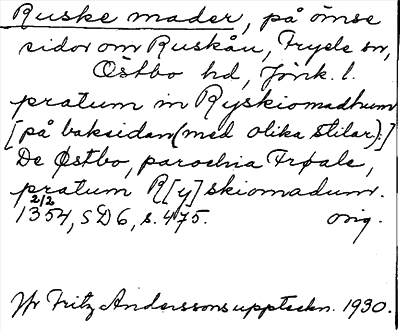 Ruske mader, på ömse
sidor om Ruskån, Fryele sn,
Östbo hd, Jönk. l.
pratum in Ryskiomadhum
[på baksidan (med olika stilar):]
De Østbo, parochia Frøale,
pratum R[y]skiomadum.
2/2
1354, SD 6, s. 475. orig.
Jfr Fritz Anderssons uppteckn. 1930.